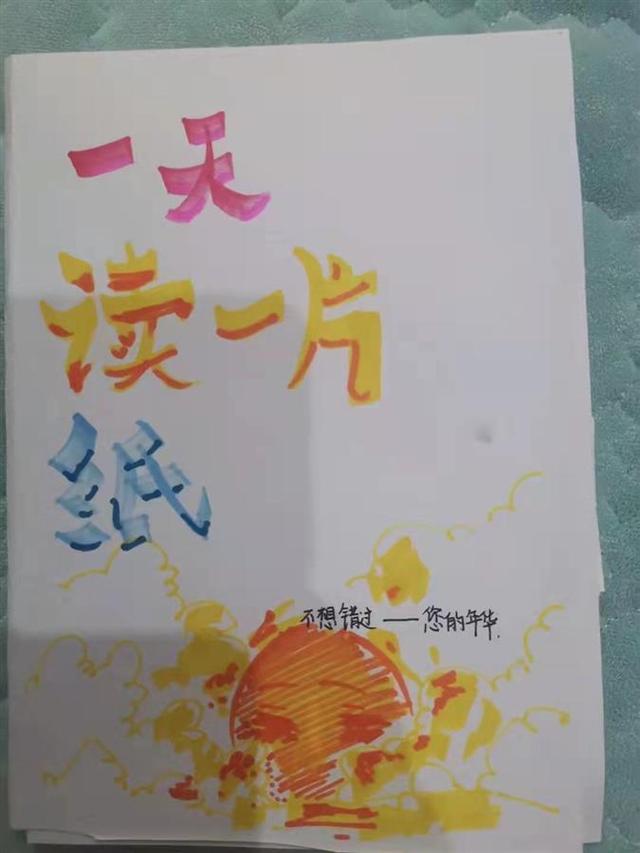 一天
读一片
纸
不想错过——您的年华.